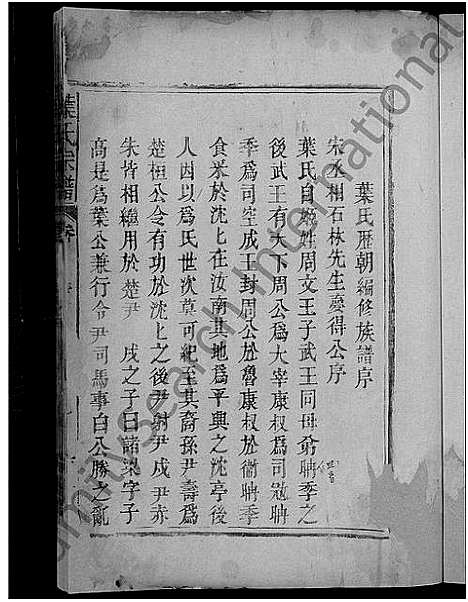 葉氏歷朝編修族譜序
宋丞相石林先生夢得公序
葉氏自姬姓周文王子武王同母弟聃季之
後武王有天下周公爲大宰康叔爲司寇聃
季爲司空成王封周公於魯康叔於衞聃季
食釆於沈沈在汝南其地爲平輿之沈亭後
人因以爲氏世次莫可紀至其裔孫尹壽爲
楚桓公令有功於沈沈之後尹射尹戍尹赤
朱皆相繼用於楚尹戍之子曰諸梁字子
高是爲葉公兼行令尹司馬事白公勝之亂
葉氏宗譜
Search International